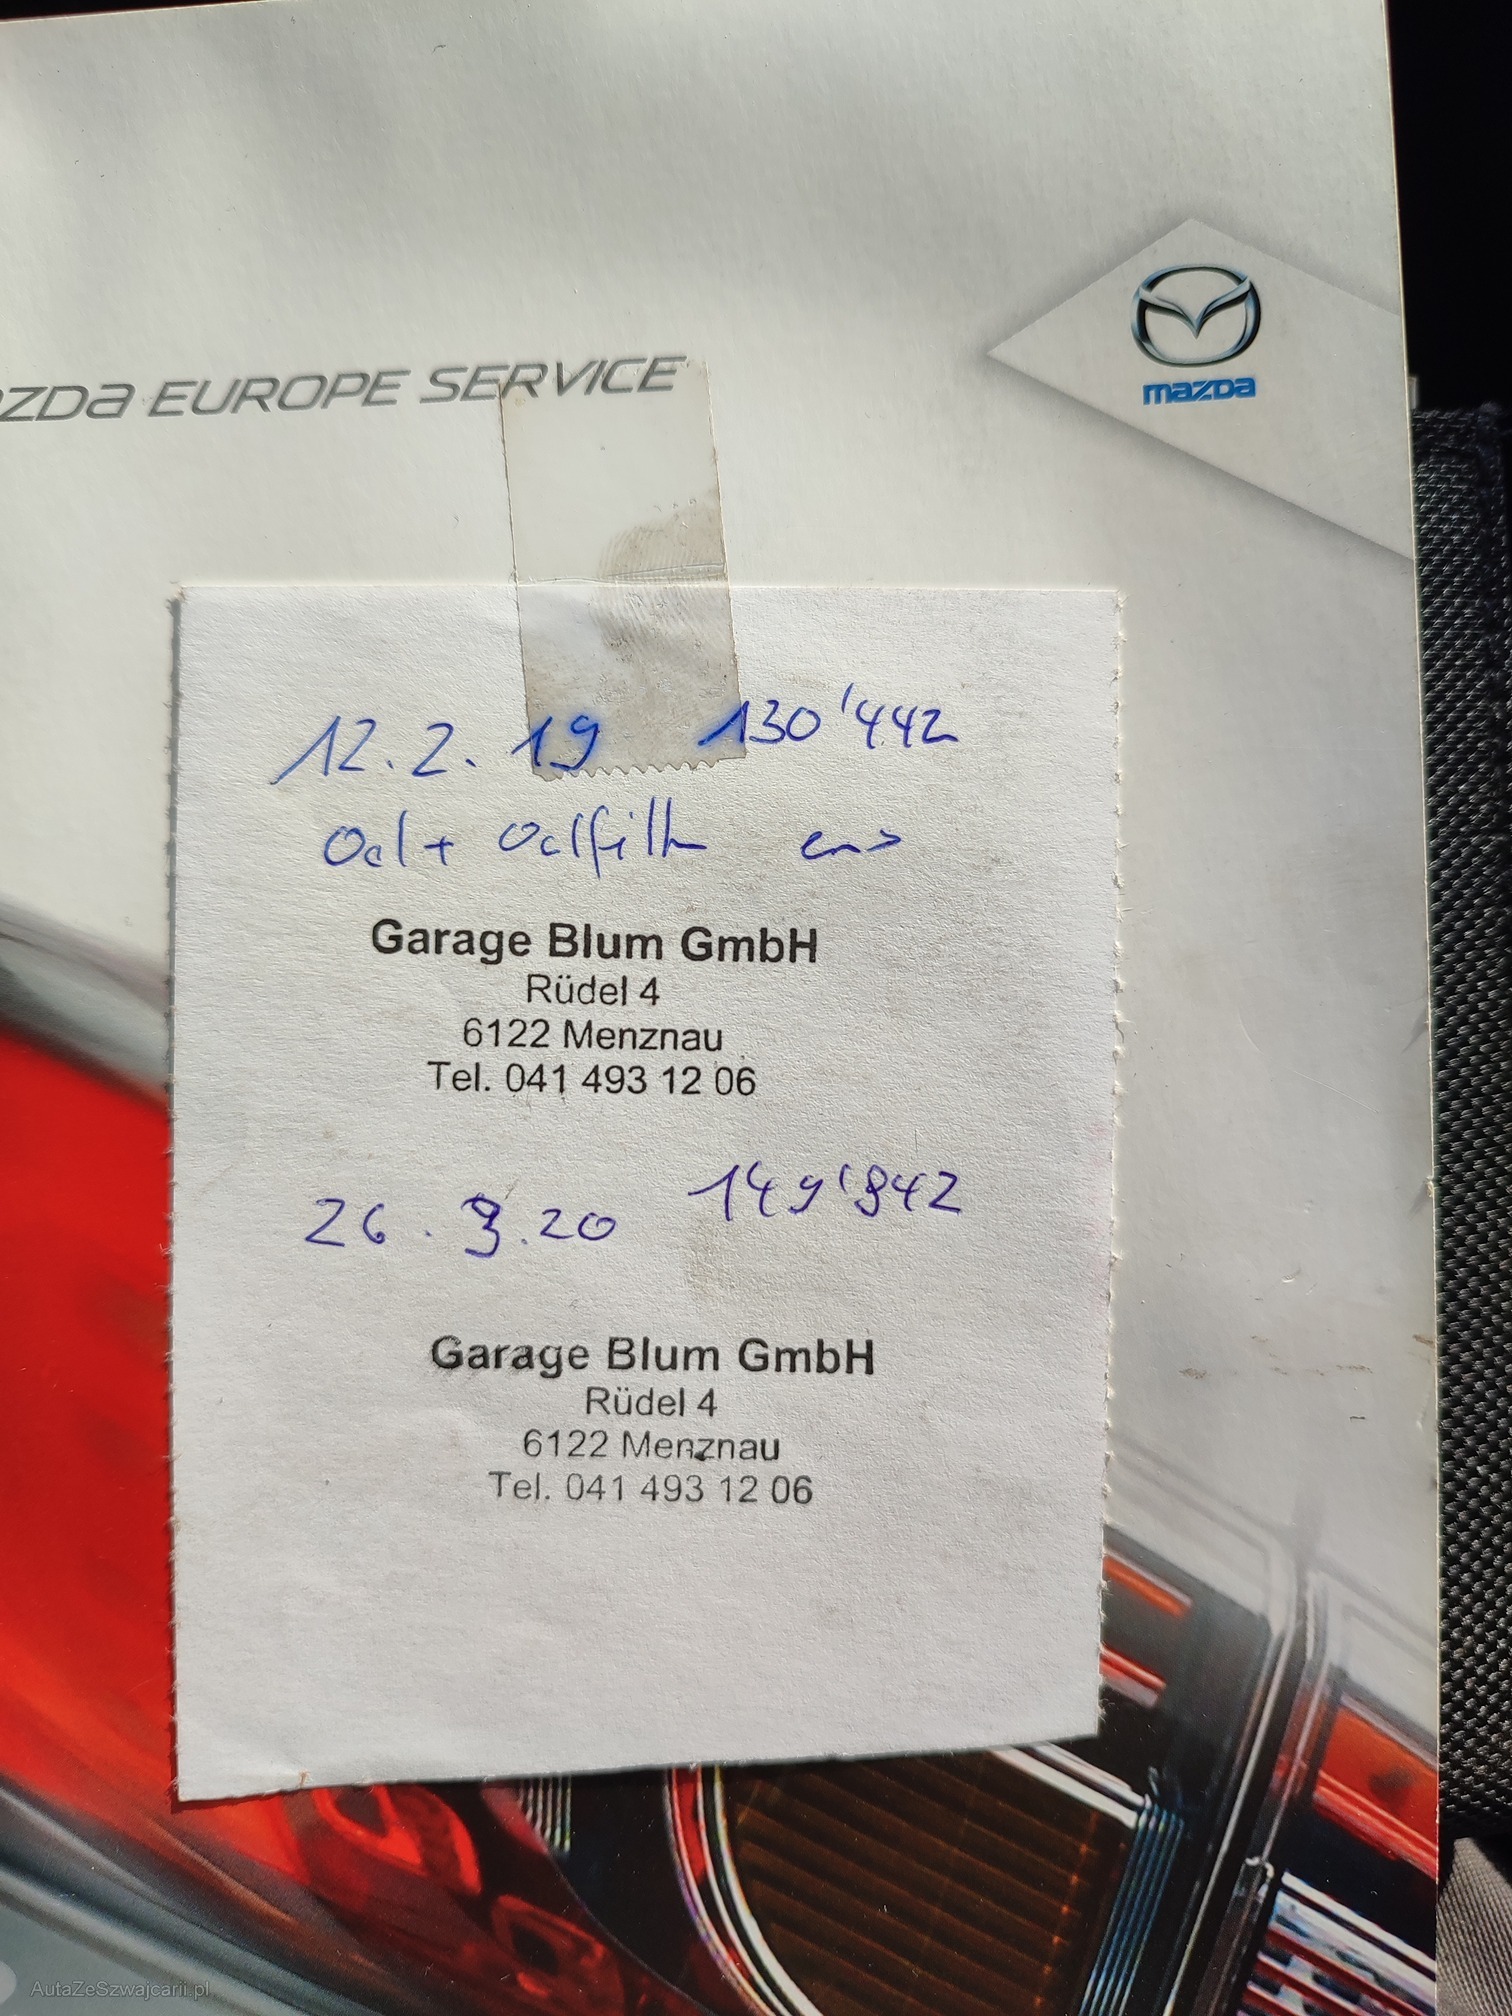 azda EUROPE SERVICE
mazda
12.2.19 130'442
Oel + Oelfilter ers
Garage Blum GmbH
Rüdel 4
6122 Menznau
Tel. 041 493 12 06
26. .20 149'842
Garage Blum GmbH
Rüdel 4
6122 Menznau
Tel. 041 493 12 06
AutaZeSzwajcarii.pl